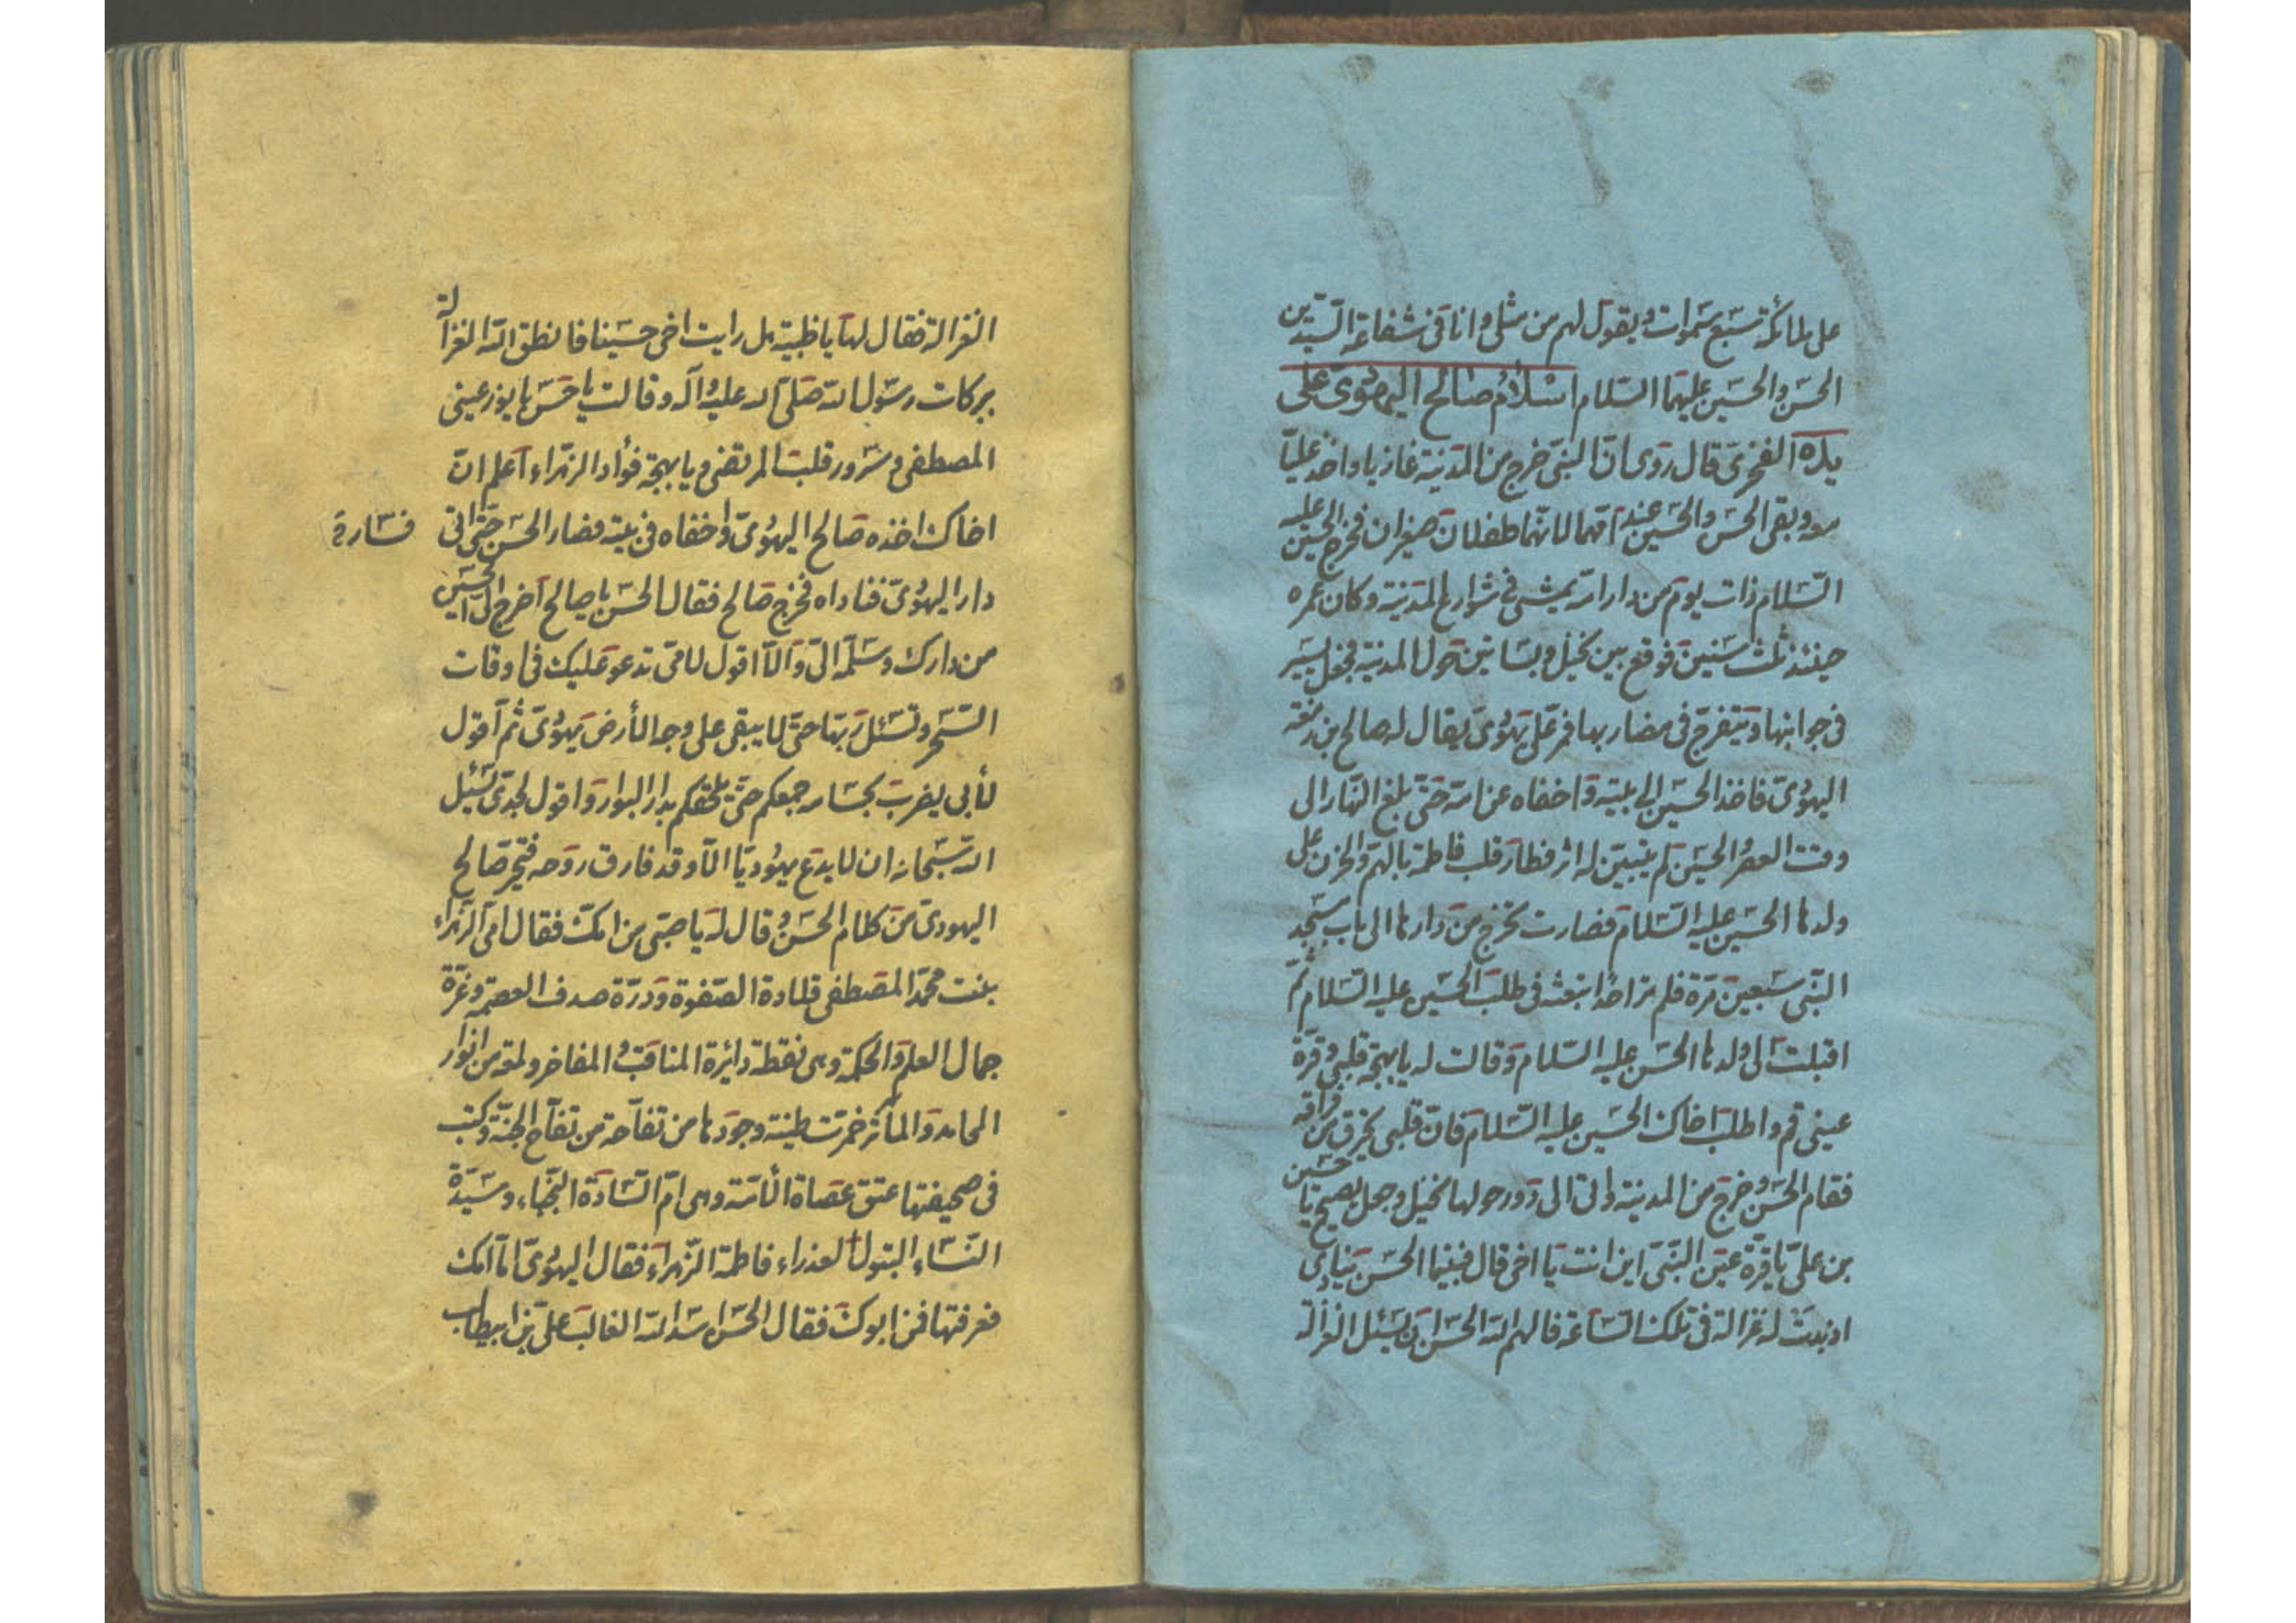 على ملائكة سبع سموات ويقول لهم من مثلى وانا فى شفاعة السّيّدين
الحسن والحسين عليهما السّلام اسلام صالح اليهودىّ على
يده الفخرى قال روى انّ النبىّ خرج من المدينة غازيا واخذ عليّا
معه وبقى الحسن والحسين عند امّهما لانّهما طفلان صغيران فخرج الحسين عليه
السّلام ذات يوم من دار امّه يمشى فى شوارع المدينة وكان عمره
حينئذ ثلث سنين فوقع بين نخيل وبساتين حول المدينة فجعل يسير
فى جوانبها ويتفرّج فى مضاربها فمرّ على يهودىّ يقال له صالح بن رقعة
اليهودىّ فاخذ الحسين الى بيته واخفاه عن امّه حتّى بلغ النّهار الى
وقت العصر والحسين لم يتبيّن له اثر فطار قلب فاطمة بالهمّ والحزن على
ولدها الحسين عليه السّلام فصارت تخرج من دارها الى باب مسجد
النّبى سبعين مرّة فلم تر احدا تبعثه فى طلب الحسين عليه السّلام ثمّ
اقبلت الى ولدها الحسن عليه السّلام وقالت له يا بهجة قلبى وقرّة
عينى قم واطلب اخاك الحسين عليه السّلام فانّ قلبى يحترق من فراقه
فقام الحسن وخرج من المدينة واتى الى دور حولها نخيل وجعل يصيح يا حسين
بن علىّ يا قرّة عين النّبىّ اين انت يا اخى قال فبينما الحسن ينادى
اذ بدت له غزالة فى تلك السّاعة فالهم اللّه الحسن ان يسئل الغزالة
الغزالة فقال لها يا ظبية هل رايت اخى حسينا فانطق اللّه الغزالة
ببركات رسول اللّه صلّى اللّه عليه وآله وقالت يا حسن يا نور عينى
المصطفى وسرور قلب المرتضى ويا بهجة فؤاد الزّهراء اعلم انّ
اخاك اخذه صالح اليهودىّ واخفاه فى بيته فصار الحسن حتّى اتى
فسارة
دار اليهودىّ فناداه فخرج صالح فقال الحسن يا صالح اخرج الىّ الحسين
من دارك وسلّمه الىّ والّا اقول لامّى تدعو عليك فى اوقات
السّحر وتسئل ربّها حتّى لا يبقى على وجه الأرض يهودىّ ثم اقول
لأبى يضرب بحسامه جمعكم حتّى يلحقكم بدار البوار واقول لجدّى يسئل
اللّه سبحانه ان لا يدع يهوديّا الّا وقد فارق روحه فتحيّر صالح
اليهودى من كلام الحسن وقال له يا صبّى من امّك فقال امّى الزّهراء
بنت محمّد المصطفى قلادة الصّفوة ودرّة صدف العصمة وغرّة
جمال العلم والحكمة وهى نقطة دائرة المناقب والمفاخر ولمعة من انوار
المحامد والمآثر خمرت طينة وجودها من تفاحة من تفاح الجنّة وكتب
فى صحيفتها عتق عصاة الأمّة وهى امّ السّادة النّجباء وسيّدة
النّساء البتول العذراء فاطمة الزّهراء فقال اليهودىّ امّا امّك
فعرفتها فمن ابوك فقال الحسن اسد اللّه الغالب علىّ بن ابيطالب